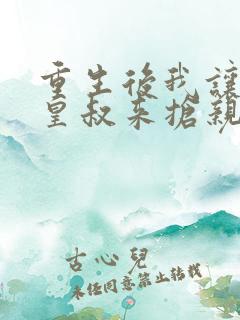 重生後我讓
皇叔来搶親
古心兒
未經同意禁止轉載